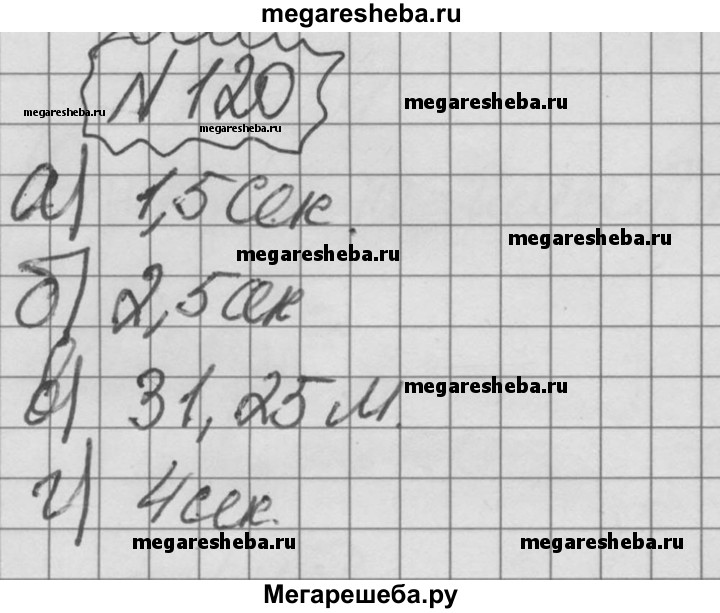 megaresheba.ru
N 120
megaresheba.ru
megaresheba.ru
megaresheba.ru
а) 1,5 сек.
megaresheba.ru
megaresheba.ru
б) 2,5 сек
в) 31,25 м.
megaresheba.ru
г) 4 сек.
megaresheba.ru
megaresheba.ru
Мегарешеба.ру